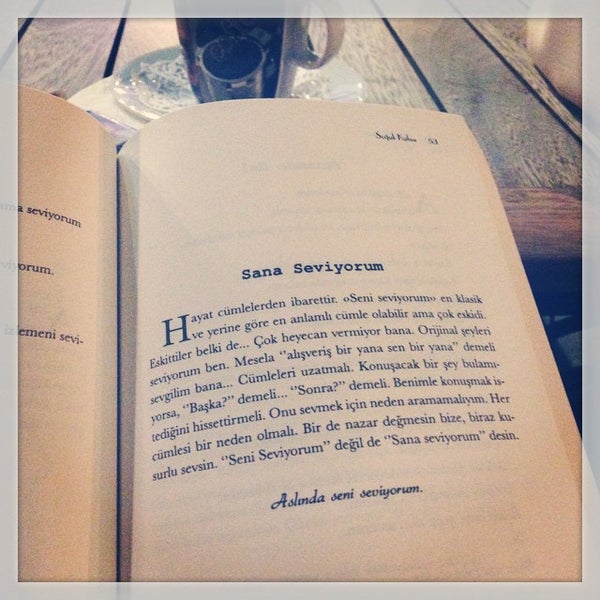 ama seviyorum
viyorum.
izlemeni sevi-
Soğuk Kahve 53
Sana Seviyorum
Hayat cümlelerden ibarettir. «Seni seviyorum» en klasik
ve yerine göre en anlamlı cümle olabilir ama çok eskidi.
Eskittiler belki de... Çok heyecan vermiyor bana. Orijinal şeyleri
seviyorum ben. Mesela “alışveriş bir yana sen bir yana” demeli
sevgilim bana... Cümleleri uzatmalı. Konuşacak bir şey bulamı-
yorsa, “Başka?” demeli... “Sonra?” demeli. Benimle konuşmak is-
tediğini hissettirmeli. Onu sevmek için neden aramamalıyım. Her
cümlesi bir neden olmalı. Bir de nazar değmesin bize, biraz ku-
surlu sevsin. “Seni Seviyorum” değil de “Sana seviyorum” desin.
Aslında seni seviyorum.